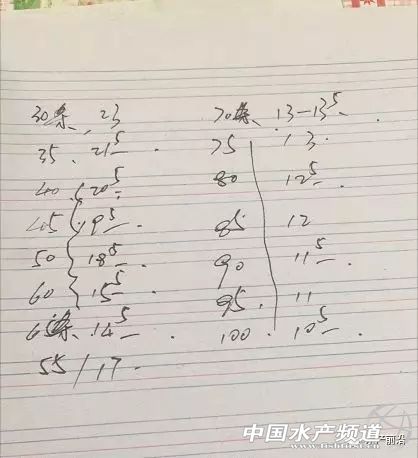 30条、23
35、21⁵
40、20⁵
45 19⁵
50 18⁵
60 15⁵
65条、14⁵
55/17
70条、13-13⁵
75 13
80 12⁵
85 12
90 11⁵
95 11
100 10⁵
中国水产频道
www.fishfirst.cn
产前沿